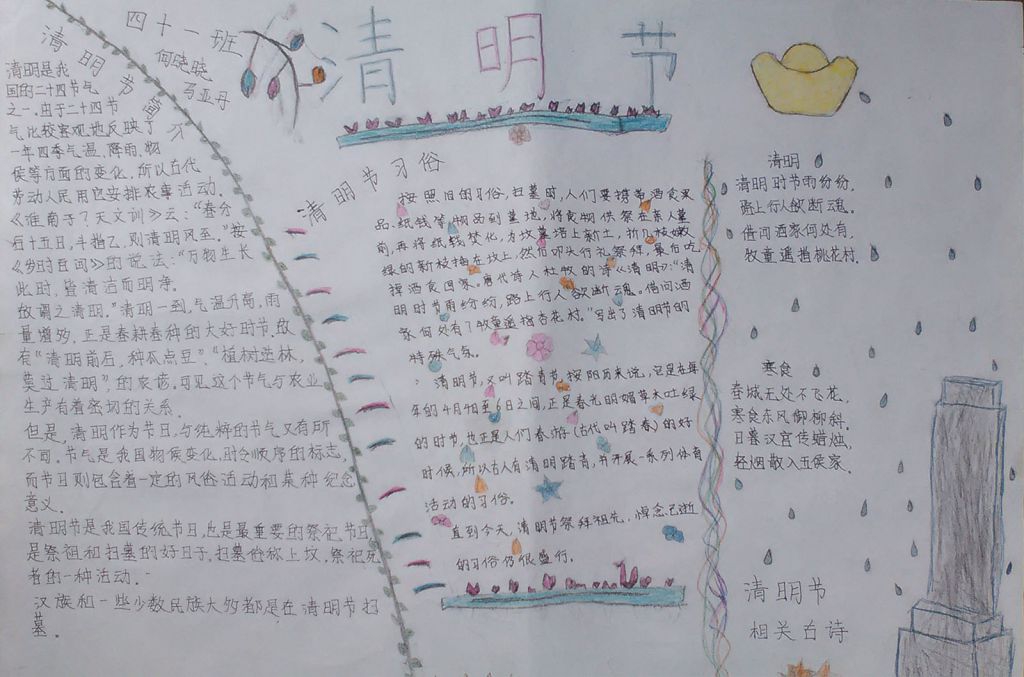 四十一班
何晓晓
马亚丹
清明节
清明节简介
清明是我
国的二十四节气
之一.由于二十四节
气比较客观地反映了
一年四季气温、降雨、物
候等方面的变化,所以古代
劳动人民用它安排农事活动.
《淮南子?天文训》云:“春分
后十五日,斗指乙,则清明风至.”按
《岁时百问》的说法:“万物生长
此时,皆清洁而明净.
故谓之清明.”清明一到,气温升高,雨
量增多,正是春耕春种的大好时节.故
有“清明前后,种瓜点豆”.“植树造林,
莫过清明”的农谚.可见这个节气与农业
生产有着密切的关系.
但是,清明作为节日,与纯粹的节气又有所
不同.节气是我国物候变化,时令顺序的标志,
而节日则包含着一定的风俗活动和某种纪念
意义.
清明节是我国传统节日,也是最重要的祭祀节日
是祭祖和扫墓的好日子.扫墓俗称上坟,祭祀死
者的一种活动.
汉族和一些少数民族大多都是在清明节扫
墓.
清明节习俗
按照旧的习俗,扫墓时,人们要携带酒食果
品.纸钱等物品到墓地,将食物供祭在亲人墓
前,再将纸钱焚化,为坟墓培上新土,折几枝嫩
绿的新枝插在坟上,然后叩头行礼祭拜,最后吃
掉酒食回家.唐代诗人杜牧的诗《清明》:“清
明时节雨纷纷,路上行人欲断魂.借问酒
家何处有?牧童遥指杏花村.”写出了清明节的
特殊气氛.
清明节,又叫踏青节,按阳历来说,它是在每
年的4月4日至6日之间,正是春光明媚草木吐绿
的时节,也正是人们春游(古代叫踏春)的好
时候,所以古人有清明踏青,并开展一系列体育
活动的习俗.
直到今天,清明节祭拜祖先,悼念已逝
的习俗仍很盛行.
清明
清明时节雨纷纷,
路上行人欲断魂.
借问酒家何处有,
牧童遥指桃花村.
寒食
春城无处不飞花,
寒食东风御柳斜.
日暮汉宫传蜡烛,
轻烟散入五侯家.
清明节
相关古诗